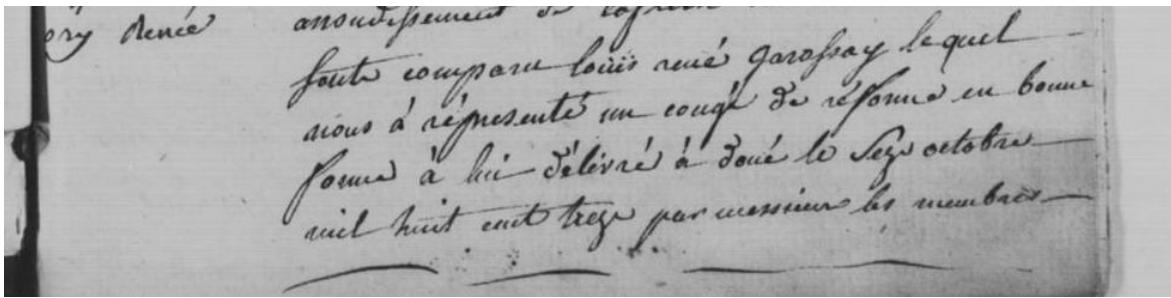 René
arrondissement de
faute comparu loüis rené garossay lequel
nous à répresenté un congé de réforme en bonne
forme à lui délivré à doué le seze octobre
mil huit cent treze par messieur les membres